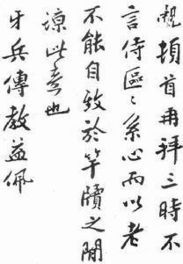 頓首再拜三時不
言侍區〻系心而以老
不能自致於竿牘之間
諒此意也
牙兵傳教益佩